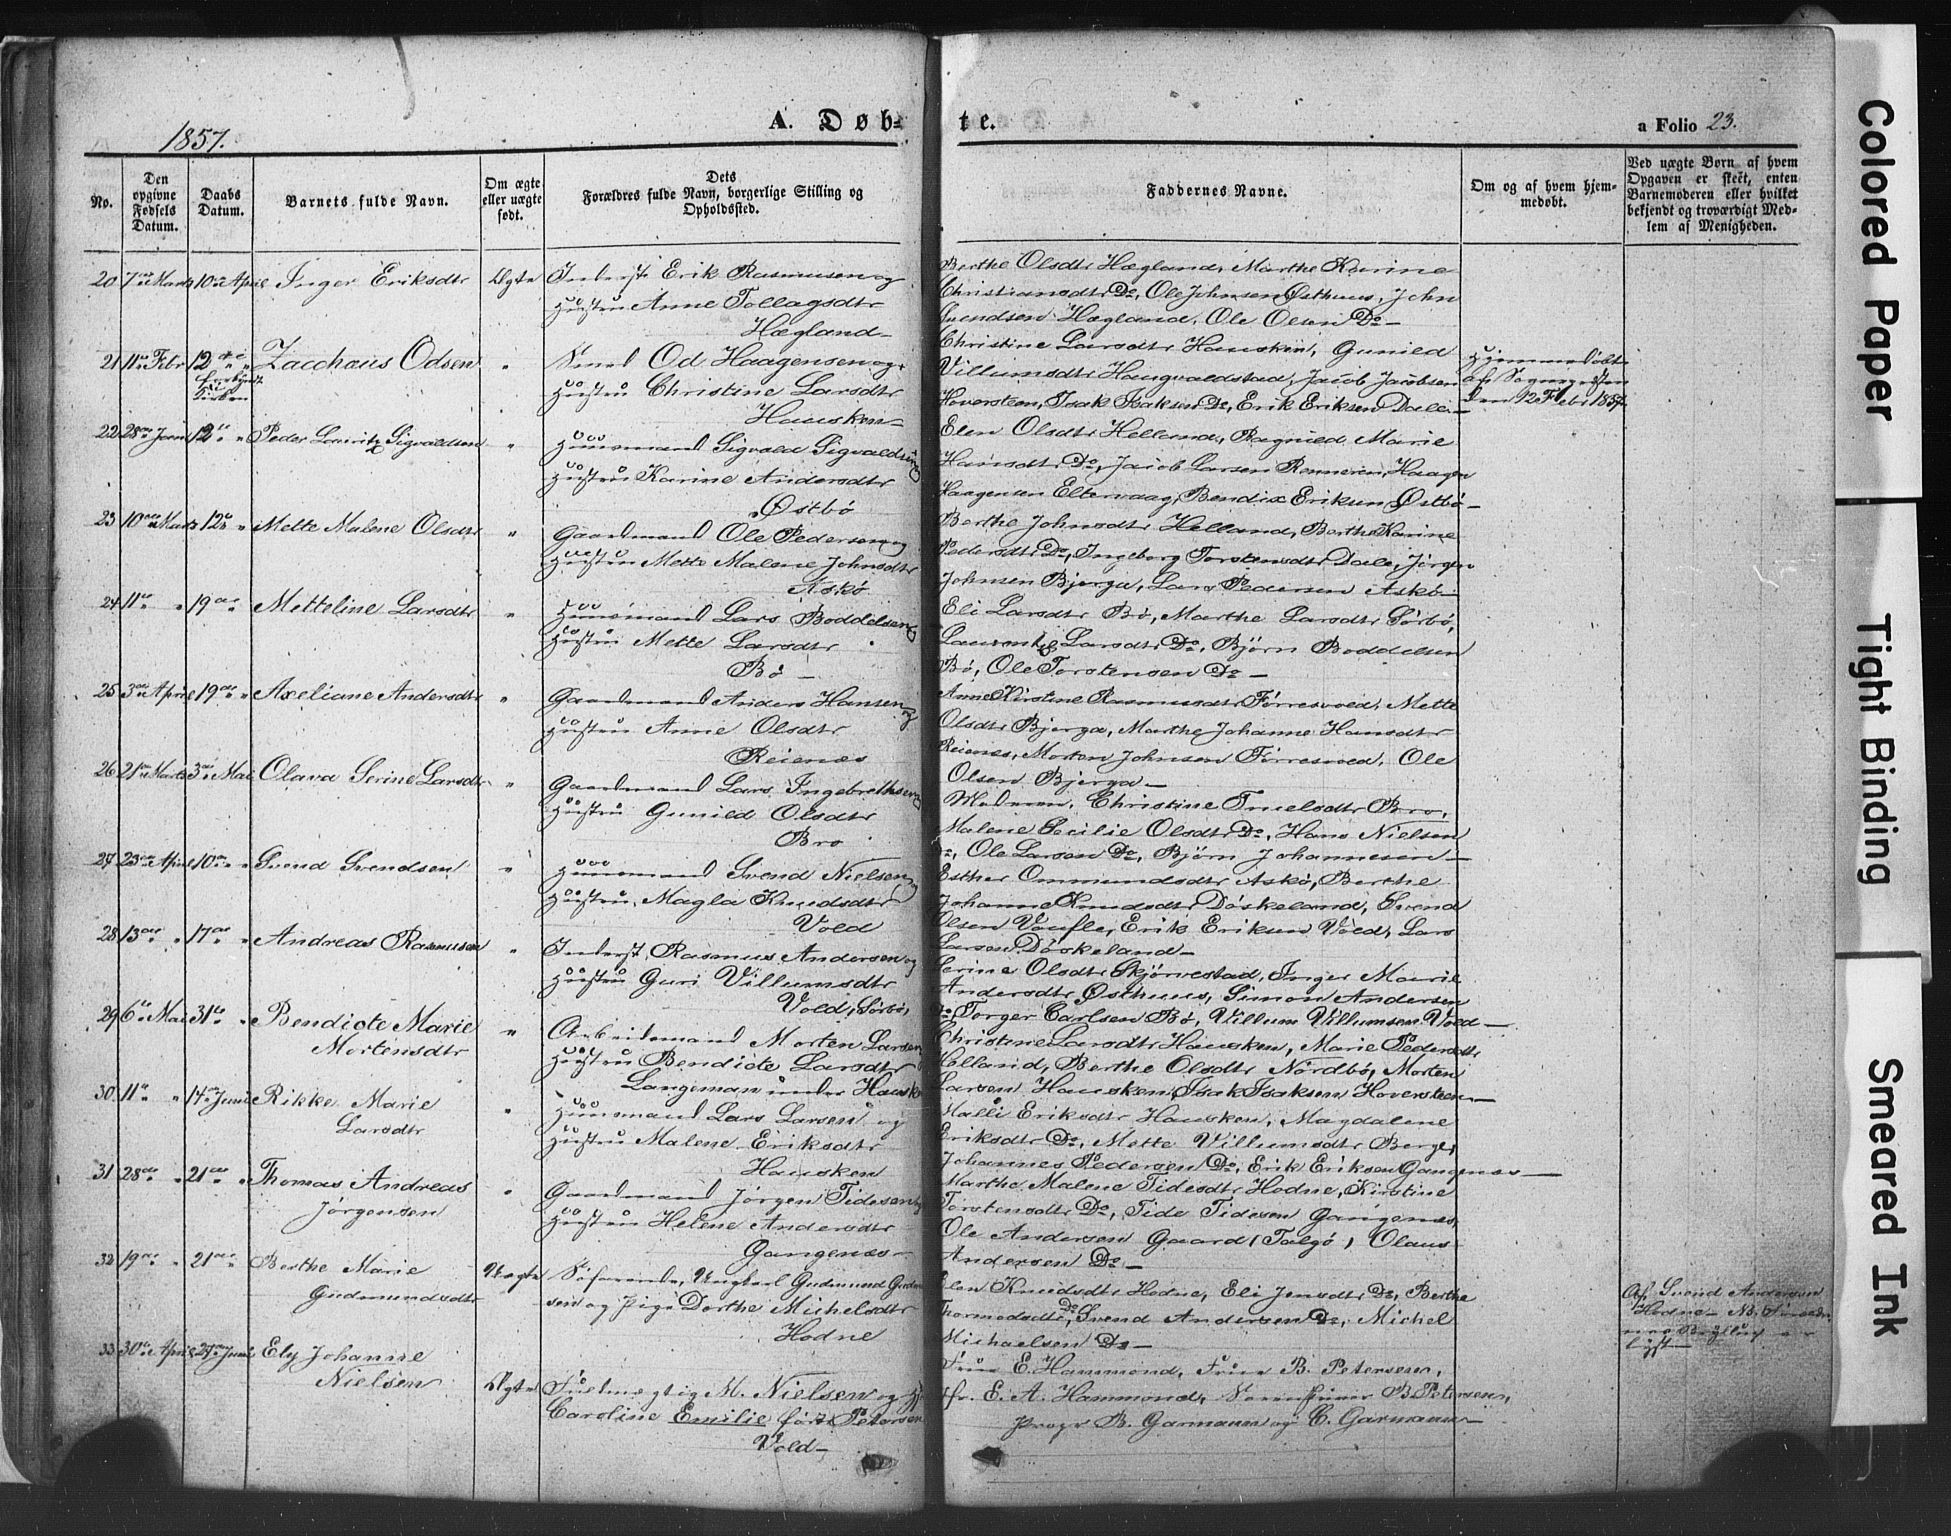 1857.
A. Døb-
te.
a Folio 23.
No.
Den opgivne Fødsels Datum.
Daabs Datum.
Barnets fulde Navn.
Om ægte eller uægte født.
Dets Forældres fulde Navn, borgerlige Stilling og Opholdssted.
Faddernes Navne.
Om og af hvem hjem-
medøbt.
Ved uægte Børn af hvem
Opgaven er skeet, enten
Barnemoderen eller hvilket
bekjendt og troværdigt Med-
lem af Menigheden.
20 7de Marts 10de April Inger Eriksdtr Ægte Inderst Erik Rasmusen og
Hustru Anne Tollagsdtr
Hægland
Berthe Olsdtr Hægland, Marthe Karine
Christiansdtr Do, Ole Johnsen Østhuus, John
Svendsen Hægland, Ole Olsen Do
21 11te Febr 12te Zacchæus Odsen " Smed Od Haagensen og
Kirken
Hustru Christine Larsdtr
Hausken
Christine Larsdtr Hausken, Gunild
Villumsdtr Haugvaldstad, Jacob Jacobsen
Hoversteen, Isak Isaksen Do, Erik Eriksen Dale
Hjemmedøbt
af Sognepresten
den 12 Febr 1857
22 28de 12te " Peder Lauritz Sigvaldsen " Huusmand Sigvald Sigvaldsen og
Hustru Karine Andersdtr
Østbø
Elen Olsdtr Helland, Ragnild Marie
Hansdtr Do, Jacob Larsen Renneren, Haagen
Haagensen Eltervaag, Bendix Eriksen Østbø
23 10de Marts 12te " Mette Malene Olsdtr " Gaardmand Ole Pedersen og
Hustru Mette Malene Johnsdtr
Askø
Berthe Johnsdtr Helland, Berthe Karine
Pedersdtr Do, Ingeborg Torstensdtr Dale, Jørgen
Johnsen Bjerga, Lars Pedersen Askø
24 11te " 19de " Metteline Larsdtr " Huusmand Lars Boddelsen og
Hustru Mette Larsdtr
Bø
Eli Larsdtr Bø, Marthe Larsdtr Sørbø,
Larsdtr Do, Bjørn Boddelsen
Bø, Ole Torstensen Do
25 3die April 19de " Axeliane Andersdtr " Gaardmand Anders Hansen og
Hustru Anne Olsdtr
Reienæs
Anne Kirstine Rasmusdtr Førresvold, Mette
Olsdtr Bjerga, Marthe Johanne Hansdtr
Reienæs, Morten Johnsen Førresvold, Ole
Olsen Bjerga
26 21de Marts 3die Mai Olava Serine Larsdtr " Gaardmand Lars Ingebrethsen og
Hustru Gunild Olsdtr
Bro
Moderen, Christine Bro,
Malene Cecilie Olsdtr Do, Hans Nielsen
Do, Ole Larsen Do, Bjørn Johannesen
27 23de April 10de " Svend Svendsen " Huusmand Svend Nielsen og
Hustru Magla Knudsdtr
Vold
Esther Ommundsdtr Askø, Berthe
Johanne Knudsdtr Døskeland, Svend
Olsen Voufle, Erik Eriksen Vold, Lars
Larsen Døskeland
28 13de " 17de " Andreas Rasmusen " Inderst Rasmus Andersen og
Hustru Guri Villumsdtr
Vold, Sørbø,
Serine Olsdtr Skjørvestad, Inger Marie
Andersdtr Østhuus, Simon Andersen
Do, Torger Carlsen Bø, Villum Villumsen Vold
29 6te Mai 31te " Bendicte Marie
Mortensdtr
" Arbeidsmand Morten Larsen
Hustru Bendicte Larsdtr
Langeman under Hausk
Christine Larsdtr Hausken, Marie Pedersdtr
Helland, Berthe Olsdtr Nordbø, Morten
Larsen Hausken, Isak Isaksen Hoversteen
30. 11te " 14de Juni Rikke Marie
Larsdtr
" Huusmand Lars Larsen og
Hustru Malene Eriksdtr
Hausken
Malli Eriksdtr Hausken, Magdalene
Eriksdtr Do, Mette Villumsdtr Berge,
Johannes Pedersen Do, Erik Eriksen Gangenæs
31 28de " 21de " Thomas Andreas
Jørgensen
" Gaardmand Jørgen Tidesen og
Hustru Helene Andersdtr
Gangenæs
Marthe Malene Tidesdtr Hodne, Kirstine
Torstensdtr Do, Tide Tidesen Gangenæs,
Ole Andersen Gaard, Talgø, Olaus
Andersen Do
32 19de " 21de " Berthe Marie
Gudmundsdtr
Uægte Søfarende, Ungkarl Gudmund Gudm
sen og Pige Dorthe Michelsdtr
Hodne
Elen Knudsdtr Hodne, Eli Jensdtr Do, Berthe
Thormodsdtr Do, Svend Andersen Do, Michel
Michaelsen Do
Af Svend Andersen
Hodne
33 30te April 29de Juni Ely Johanne
Nielsen
Ægte Fuldmægtig M. Nielsen og H
Caroline Emilie født Petersen
Vold
Frue E. Hammond, Frue B. Petersen,
Hr. E. A. Hammond, B. Petersen,
B. Garmann og C. Garmann
Colored Paper
Tight Binding
Smeared Ink